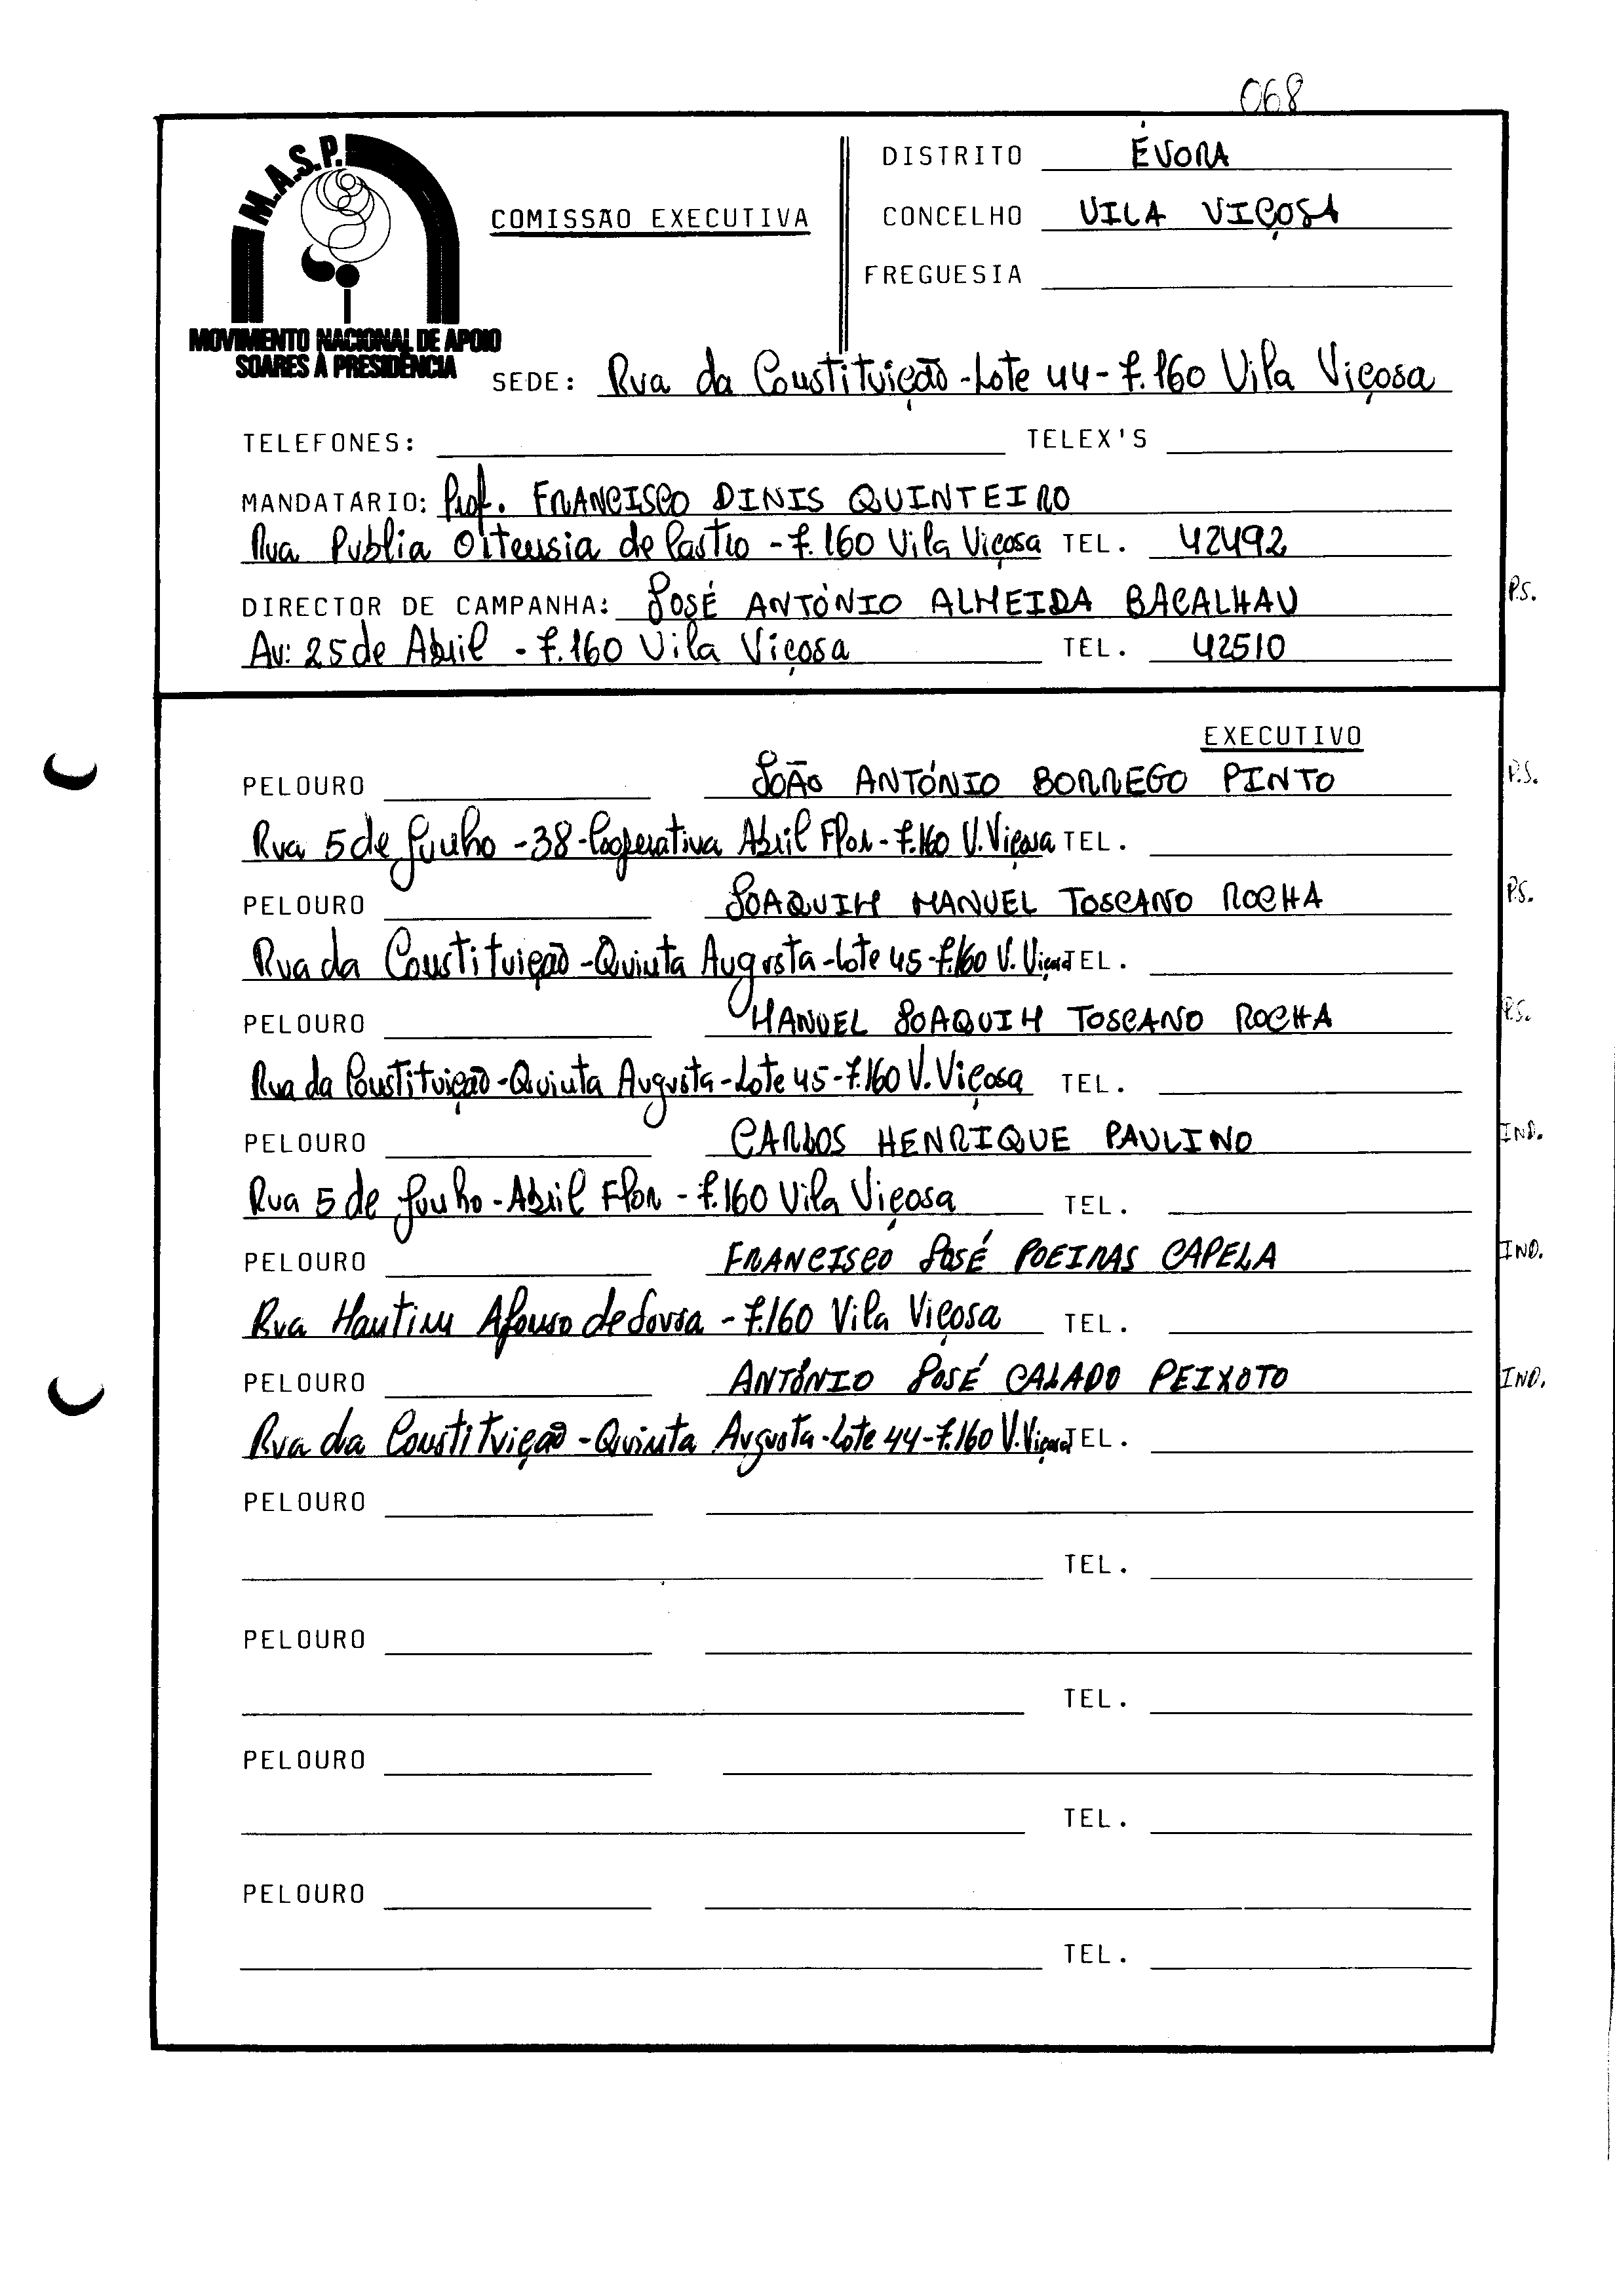 068
M.A.S.P.
MOVIMENTO NACIONAL DE APOIO
SOARES À PRESIDÊNCIA
COMISSÃO EXECUTIVA
DISTRITO ÉVORA
CONCELHO VILA VIÇOSA
FREGUESIA
SEDE: Rua da Constituição - Lote 44 - 7.160 Vila Viçosa
TELEFONES: TELEX'S
MANDATARIO: Prof. FRANCISCO DINIS QUINTEIRO
Rua Publia Ortensia de Castro - 7.160 Vila Viçosa TEL. 42492
DIRECTOR DE CAMPANHA: JOSÉ ANTÓNIO ALMEIDA BACALHAU P.S.
Av: 25 de Abril - 7.160 Vila Viçosa TEL. 42510
EXECUTIVO
PELOURO JOÃO ANTÓNIO BORREGO PINTO P.S.
Rua 5 de Junho - 38 - Cooperativa Abril Flor - 7.160 V. Viçosa TEL.
PELOURO JOAQUIM MANUEL TOSCANO ROCHA P.S.
Rua da Constituição - Quinta Augusta - Lote 45 - 7.160 V. Viçosa TEL.
PELOURO MANUEL JOAQUIM TOSCANO ROCHA P.S.
Rua da Constituição - Quinta Augusta - Lote 45 - 7.160 V. Viçosa TEL.
PELOURO CARLOS HENRIQUE PAULINO IND.
Rua 5 de Junho - Abril Flor - 7.160 Vila Viçosa TEL.
PELOURO FRANCISCO JOSÉ POEIRAS CAPELA IND.
Rua Martim Afonso de Sousa - 7.160 Vila Viçosa TEL.
PELOURO ANTÓNIO JOSÉ CALADO PEIXOTO IND.
Rua da Constituição - Quinta Augusta - Lote 44 - 7.160 V. Viçosa TEL.
PELOURO
TEL.
PELOURO
TEL.
PELOURO
TEL.
PELOURO
TEL.